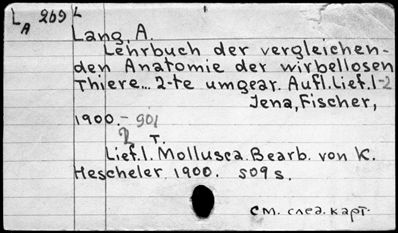 L A 269 L
Lang, A.
Lehrbuch der vergleichen-
den Anatomie der wirbellosen
Thiere... 2-te umgear. Aufl. Lief. 1-2
Jena, Fischer,
1900.-901
2 т.
Lief. 1. Mollusca. Bearb. von K.
Hescheler. 1900. 509 s.
см. след. карт.